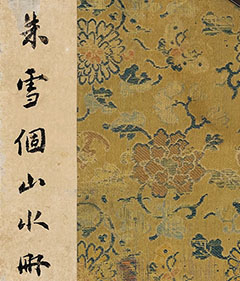 朱雪個山水冊